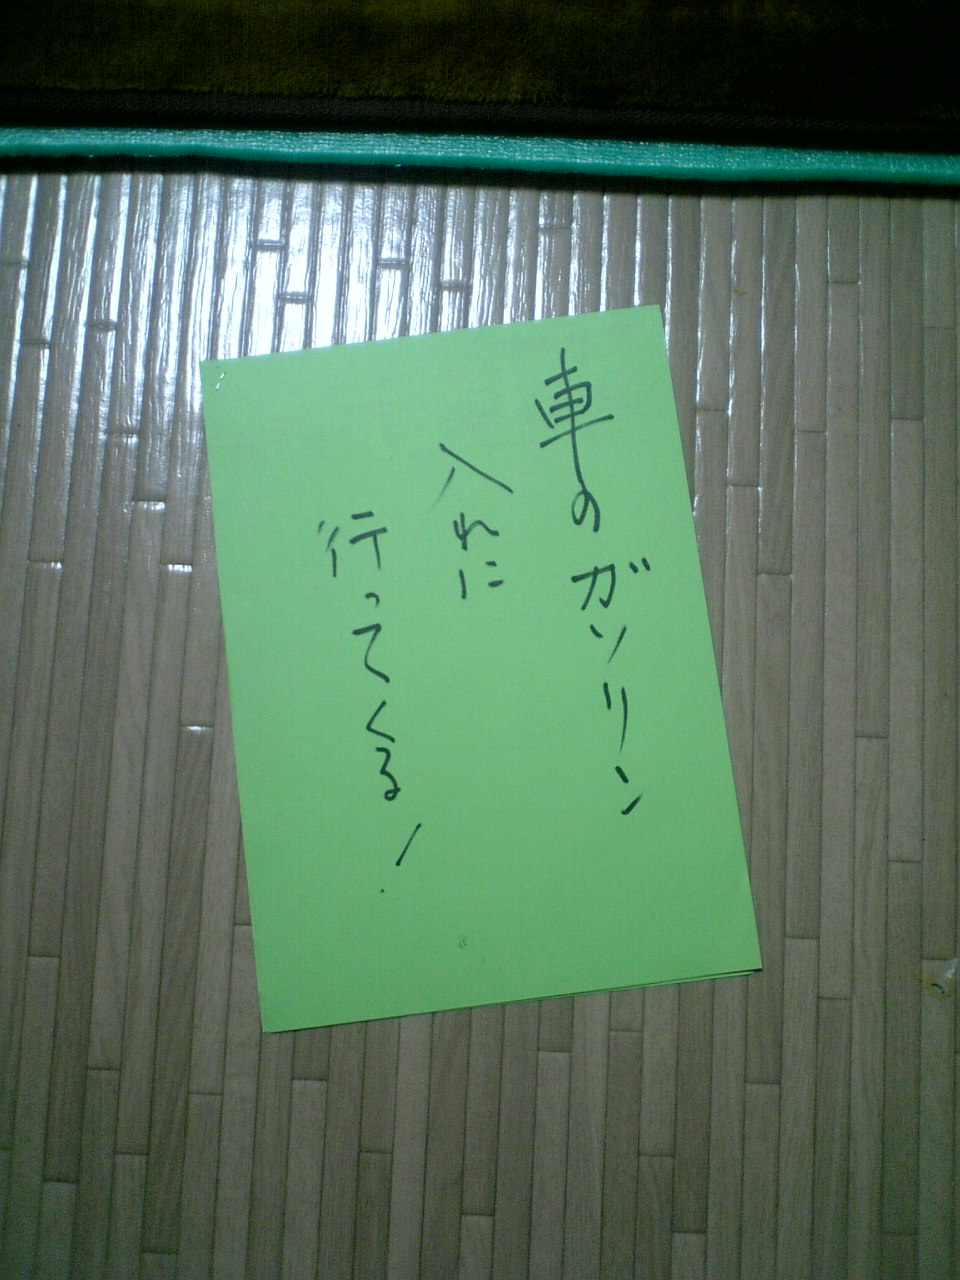 車のガソリン
入れに
行ってくる!